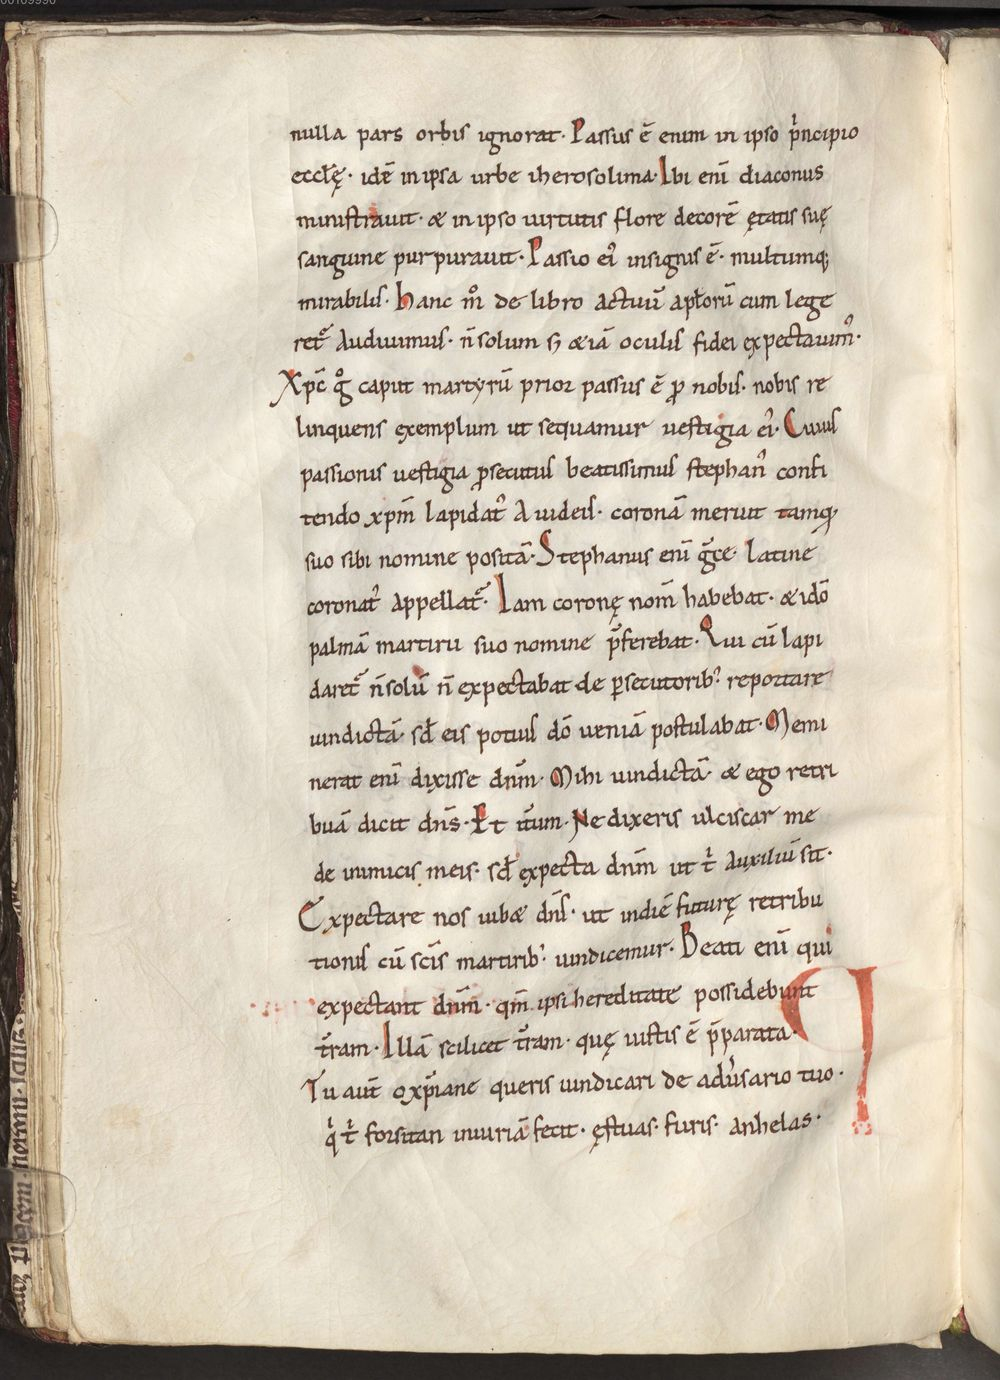 nulla pars orbis ignorat. Passus ē enim in ipso p̍ncipio
eccłę. idē in ipsa urbe iherosolima. Ibi enī diaconus
ministrauit. æ in ipso uirtutis flore decorē ętatis suę
sanguine purpurauit. Passio ei᾿ insignis ē. multumq;
mirabilis. Hanc m̊ de libro actuū apłorū cum lege
ret᷑ audiuimus. n̄ solum s; æiā oculis fidei expectauim᾿.
Xp̄c g̊ caput martyrū prior passus ē ꝓ nobis. nobis re
linquens exemplum ut sequamur uestigia ei᾿. Cuius
passionis uestigia ꝓsecutus beatissimus stephan᾿ confi
tendo xp̄m lapidat᾿ a iudeis. coronā meruit tamq;
suo sibi nomine positā. Stephanus enī g̃ce. latine
coronat᾿ appellat᷑. Iam coronę nom̄ habebat. æ idō
palmā martirii suo nomine p̃ferebat. Qui cū lapi
daret᷑ n̄ solū n̄ expectabat de ꝑsecutorib᾿ reportare
uindictā. sđ eis potius dō ueniā postulabat. Memi
nerat enī dixisse dnm̄. Mihi uindictā. æ ego retri
buā dicit dn̄s. Et it̄um. Ne dixeris ulciscar me
de inimicis meis. sđ expecta dnm̄ ut t̍ auxiliū sit.
Expectare nos iubæ dn̄s. ut indiē futurę retribu
tionis cū scīs martirib᾿ uindicemur. Beati enī qui
expectant dnm̄. qm̄ ipsi hereditate possidebunt
t̄ram. Illā scilicet t̄ram. quę iustis ē p̃parata.
Tu aut̄ o xp̄iane queris uindicari de adūsario tuo.
q̍ t̍ forsitan iniuriā fecit. ęstuas. furis. anhelas.